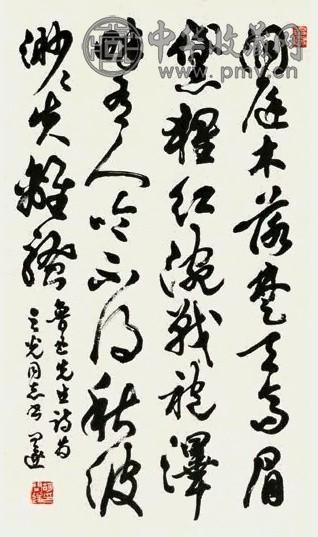 中华收藏网
www.pmv.cn
洞庭木落楚天高眉
黛猩红涴战袍澤
畔有人吟不得秋波
渺々失離騷
鲁迅先生诗为
之光同志书